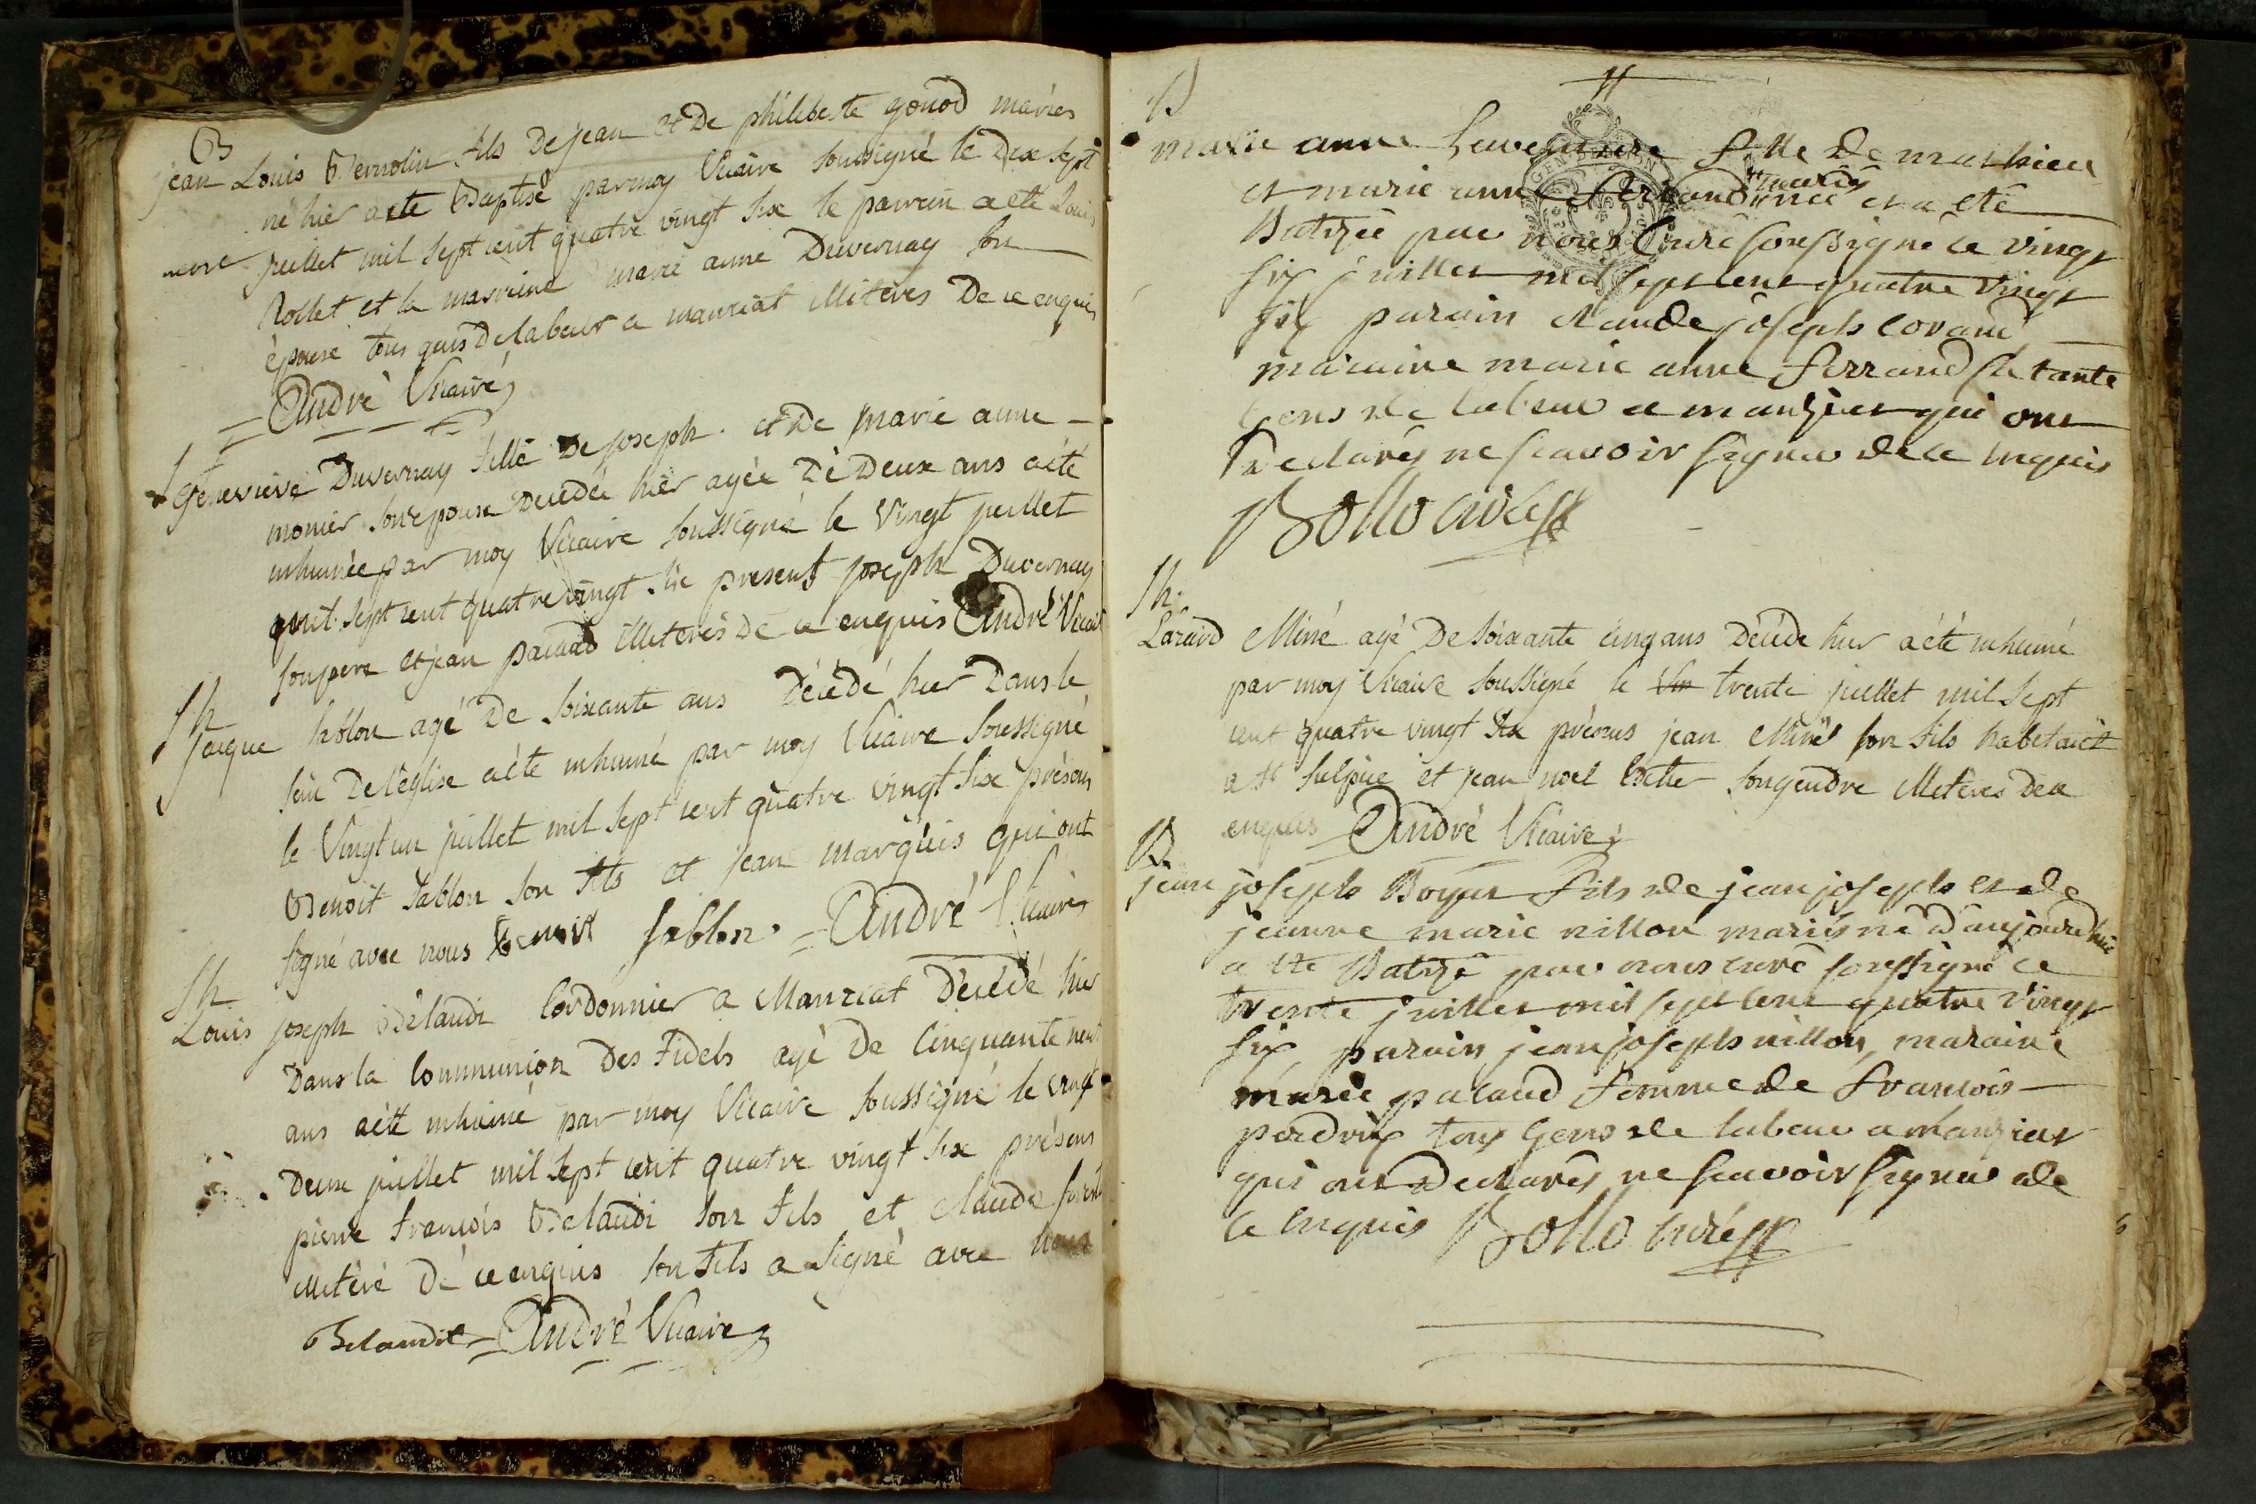 B
jean Louis Vernolin fils De jean et De philiberte gonod mariés
né hier a ete Baptisé par moy Vicaire soussigné le Dix sept
juillet mil sept cent quatre vingt six le parrein a eté Louis
Rollet et la marreine marie anne Duvernay son
épouse tous gens De labeur a manziat illiteres De ce enquis
André Vicaire
Sh
Genevieve Duvernay fille De joseph et De marie anne
monier son epouse Decedée hier agée De Deux ans a eté
inhumée par moy Vicaire soussigné le Vingt juillet
mil sept cent quatre vingt six presents joseph Duvernay
son pere et jean pacaud illiteres De ce enquis André Vicaire
Sh
jacque sablon agé De soixante ans Décédé hier Dans le
sein De l'eglise a été inhumé par moy Vicaire soussigné
le Vingt un juillet mil sept cent quatre vingt six présens
Benoit sablon son fils et jean marquis qui ont
signé avec nous Benoit sablon. André Vicaire
Sh
Louis joseph Belaudi Cordonnier a Manziat Décédé hier
Dans la Communion Des fidels agé De Cinquante neuf
ans a été inhumé par moy Vicaire soussigné le vingt
Deux juillet mil sept cent quatre vingt six présens
pierre françois Belaudi son fils et claude
illiteré De ce enquis son fils a signé avec nous
Belaudit André Vicaire
B
marie anne fille de mathieu
et marie anne ferrand mariés née et a eté
Batizée par nous Curé soussigné ce vingt
six juillet mil sept cent quatre vingt
six parain claude joseph corand
maraine marie anne ferrand sa tante
Gens de labeur a manziat qui ont
Declarés ne scavoir signer de ce enquis
Bollo curé
Sh.
Lazard Miné agé De soixante cinq ans Décédé hier a été inhumé
par moy Vicaire soussigné le Vin trente juillet mil sept
cent quatre vingt six présens jean Miné son fils habitant
a St Sulpice et jean noel son gendre illiteres De ce
enquis André Vicaire
B
jean joseph Boyer fils de jean joseph et de
jeanne marie nillon mariés né d'aujourdhui
a ete Batizé par nous curé soussigné ce
trente juillet mil sept cent quatre vingt
six parain jean joseph nillon, maraine
marie pacaud femme de francois
perdrix tous Gens de labeur a Manziat
qui ont Declarés ne scavoir signer de
ce enquis Bollo curé